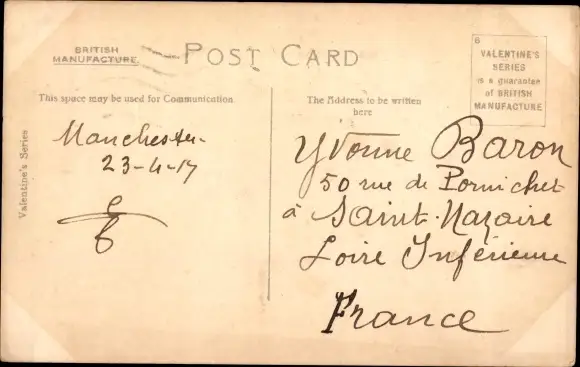 BRITISH
MANUFACTURE
POST CARD
6
VALENTINE'S
SERIES
is a guarantee
of BRITISH
MANUFACTURE
This space may be used for Communication.
The Address to be written
here
Valentine's Series
Manchester
23-4-17
Yvonne Baron
50 rue de Pornichet
à Saint-Nazaire
Loire Inférieure
France